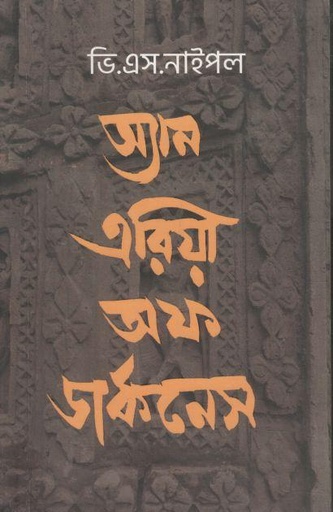 ভি.এস.নাইপল
অ্যান
এরিয়া
অফ
ডার্কনেস